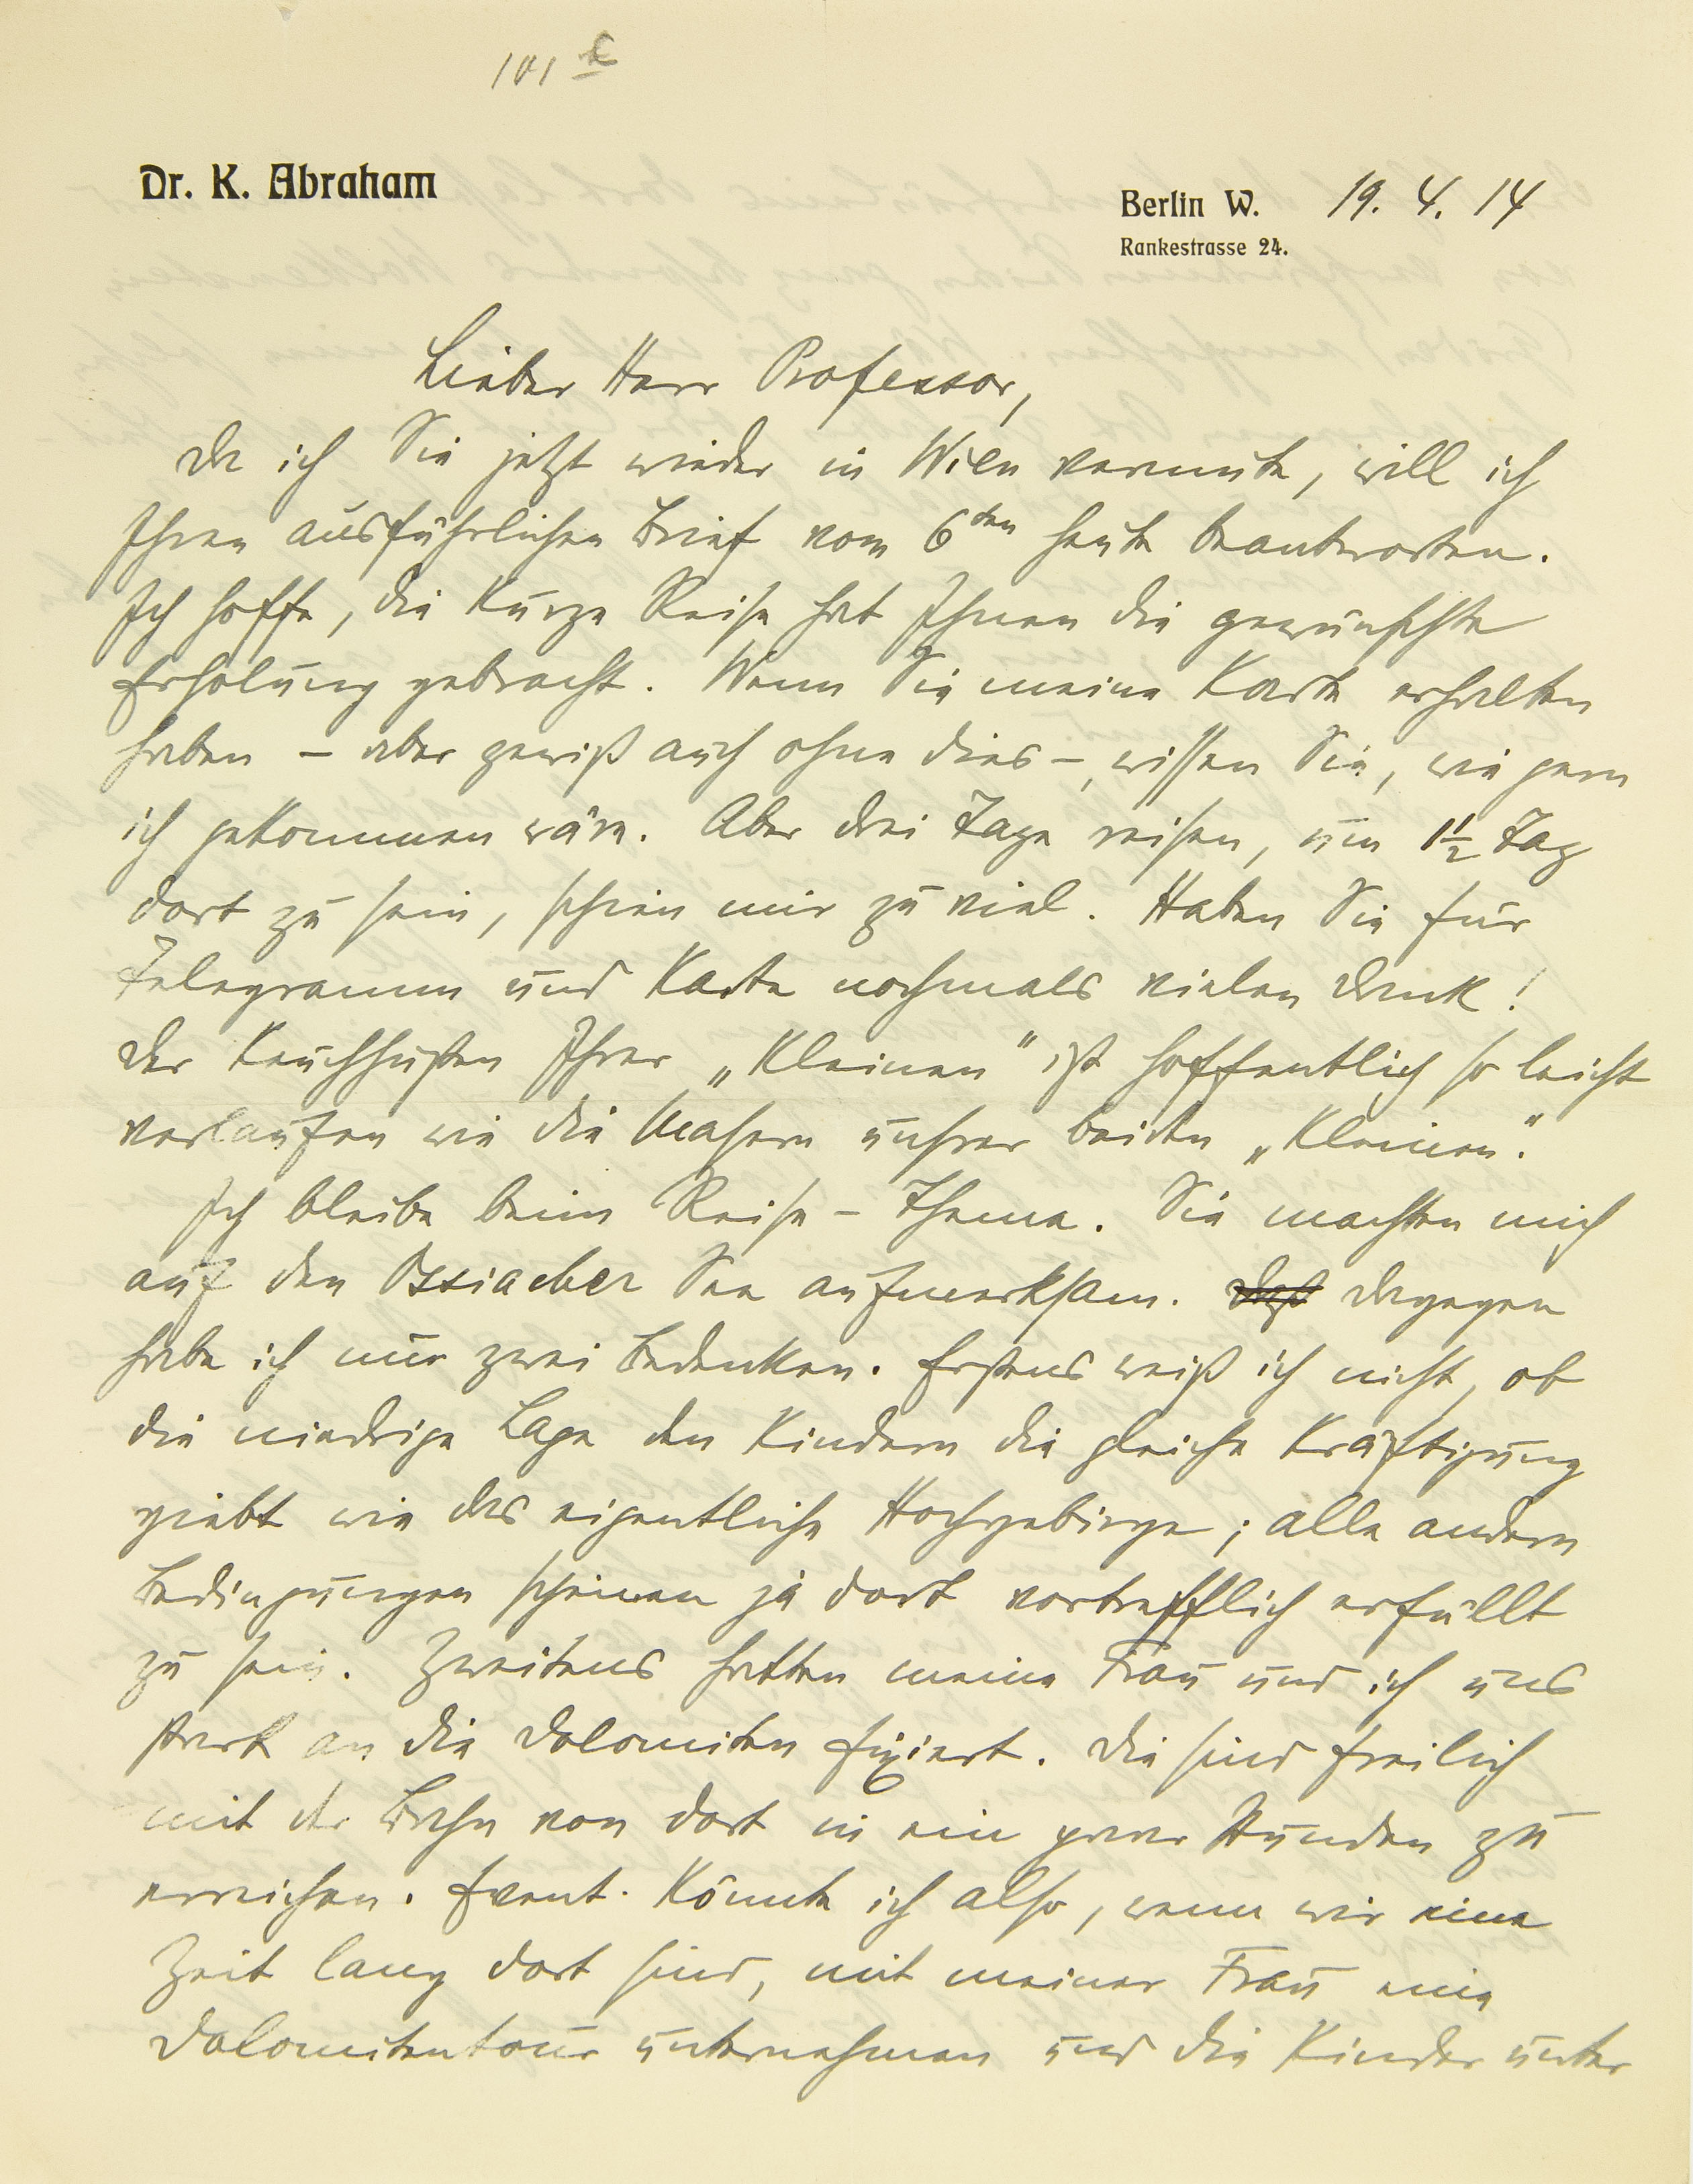 Dr. K. Abraham
Berlin W. 19. 4. 14
Rankestrasse 24.
Lieber Herr Professor,
Da ich Sie jetzt wieder in Wien vermute, will ich
Ihren ausführlichen Brief vom 6ten heute beantworten.
Ich hoffe, die kurze Reise hat Ihnen die gewünschte
Erholung gebracht. Wenn Sie meine Karte erhalten
haben – aber gewiß auch ohne dies –, wissen Sie, wie gern
ich gekommen wäre. Aber drei Tage reisen, um 1½ Tag
dort zu sein, schien mir zu viel. Haben Sie für
Telegramm und Karte nochmals vielen Dank!
Der Keuchhusten Ihrer „Kleinen“ ist hoffentlich so leicht
verlaufen wie die Masern unsrer beiden „Kleinen“.
Ich bleibe beim Reise-Thema. Sie machten mich
auf den Ossiacher See aufmerksam. Dagegen
habe ich nur zwei Bedenken. Erstens weiß ich nicht, ob
die niedrige Lage den Kindern die gleiche Kräftigung
giebt wie das eigentliche Hochgebirge; alle andern
Bedingungen scheinen ja dort vortrefflich erfüllt
zu sein. Zweitens hatten meine Frau und ich uns
stark an die Dolomiten fixiert. Die sind freilich
mit der Bahn von dort in ein paar Stunden zu
erreichen. Event. könnte ich also, wenn wir eine
Zeit lang dort sind, mit meiner Frau eine
Dolomitentour unternehmen und die Kinder unter